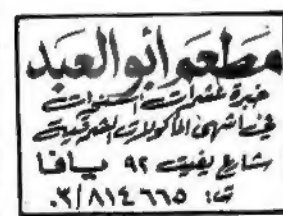 مطعم ابو العبد
خبرة عشرات السنوات
في اشهى المأكولات الشرقية
شارع يفيت ٩٢ يافا
ت: ٠٣/٨١٤٦٦٥